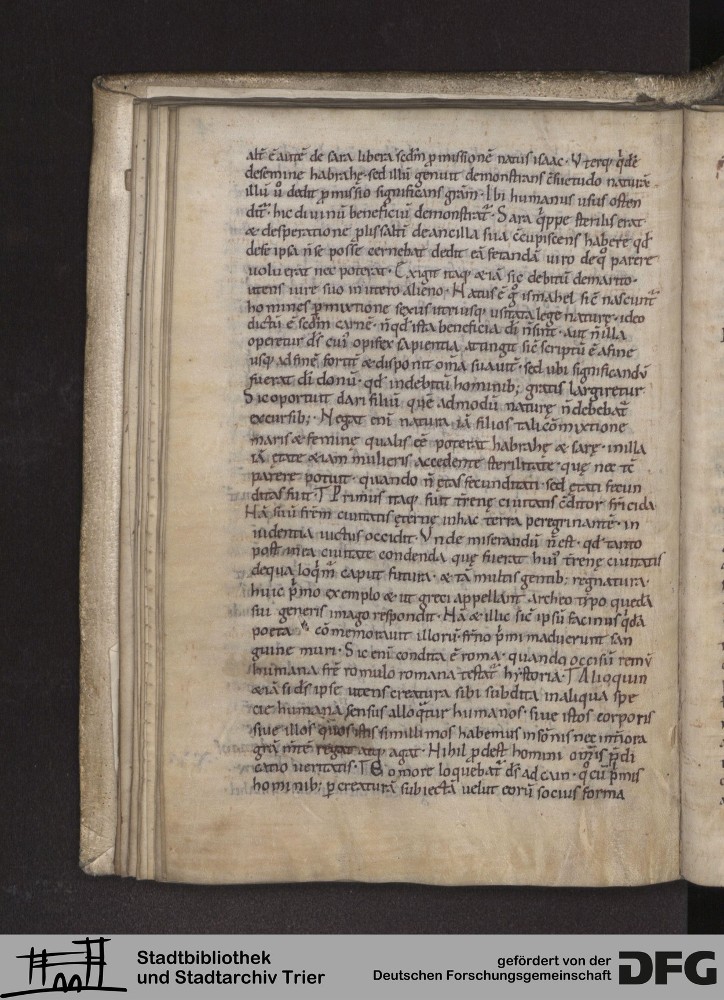 alt̄ ē autē de sara libera scdm̄ ꝓmissionē natus isaac · Vterq; qͥdē
de semine habrahę · sed illū genuit demonstrans c̄suetudo naturā
illū ū dedit ꝓmissio significans grām̄ · Ibi humanus usus osten
dit᷑ · hic diuinū beneficiū demonstrat᷑ · Sara qͥppe sterilis erat
& desperatione plis saltī de ancilla sua c̄cupiscens habere qđ
de se ipsa n̄ se posse cernebat dedit eā fetandā uiro de qͦ parere
uoluerat nec poterat · Exigit itaq; & iā sic debitū de marito ·
utens iure suo in utero alieno · Natus ē gͦ ismahel sic̄ nascunt᷑
homines ꝑmixtione sexus utriusq; usitata lege naturę · ideo
dictū ē scdm̄ carnē · n̄ qđ ista beneficia dī n̄ sint · aut n̄ illa
operetur ds̄ cui᷒ opifex sapientia attingit sic̄ scriptū ē a fine
usq; ad finē fortit̄ & disponit om̄a suauit̄ · sed ubi significandū
fuerat dī donū · qđ indebitū hominib; gratis largiretur
Sic oportuit dari filiū quē admodū naturę n̄ debebat᷑
excursib; · Negat enī natura iā filios tali cōmixtione
maris & femine qualis eē poterat habrahę & sarę · in illa
iā ętate & iam mulieris accedente sterilitate · quę nec tc̄
parere potuit · quando n̄ ętas fecunditati · sed ętati fecun
ditas fuit · Primus itaq; fuit t̄renę ciuitatis c̄ditor fr̄icida
Nā suū fr̄em ciuitatis ęternę in hac terra peregrinantē · in
iudentia uictus occidit · Vnde miserandū n̄ est · qđ tanto
post in ea ciuitate condenda quę fuerat hui᷒ t̄renę ciuitatis
de qua loqͥm̄ caput futura · & tā multis gentib; regnatura ·
huic pͥmo exemplo & ut greci appellant archeo tipo quedā
sui generis imago respondit · Nā & illic sic̄ ipsū facinus qͥdā
poeta cōmemorauit illorū · fr̄no pͥmi maduerunt san
guine muri · Sic enī condita ē roma · quando occisū remū
humana fr̄e romulo romana testat᷑ hystoria · Alioquin
& iā si ds̄ ipse utens creatura sibi subdita in aliqua spe
cie humana sensus alloqͥtur humanos · siue istos corporis
siue illos quos istis simillimos habemus in sōnis nec int̄iora
grā m̄te regat atq; agat · Nihil ꝓdest homini om̄is p̄di
catio ueritatis · Eo more loquebat᷑ ds̄ ad cain · qͦ cū pͥmis
hominib; ꝑ creaturā subiectā uelut eorū socius forma
Stadtbibliothek
und Stadtarchiv Trier
gefördert von der
Deutschen Forschungsgemeinschaft
DFG